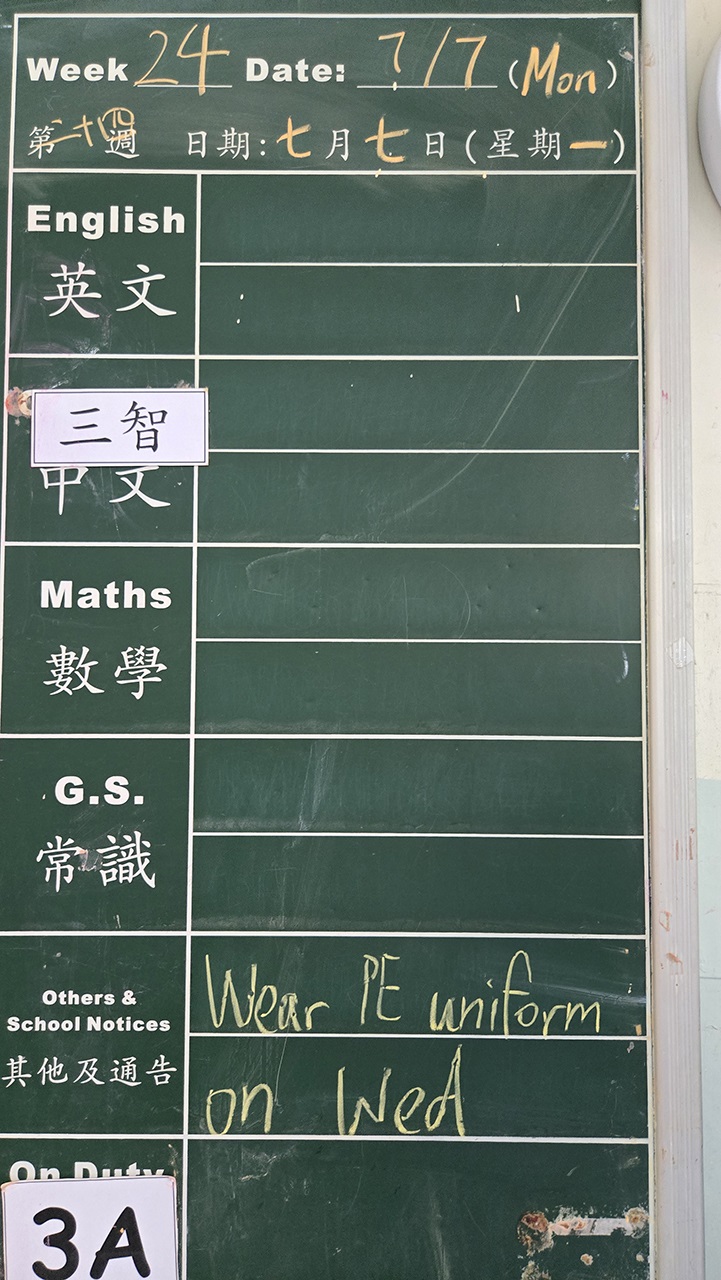 Week 24 Date: 7/7 (Mon)
第二十四週 日期:七月七日(星期一)
English
英文
三智
中文
Maths
數學
G.S.
常識
Others &
School Notices
其他及通告
Wear PE uniform
on Wed
On Duty
3A